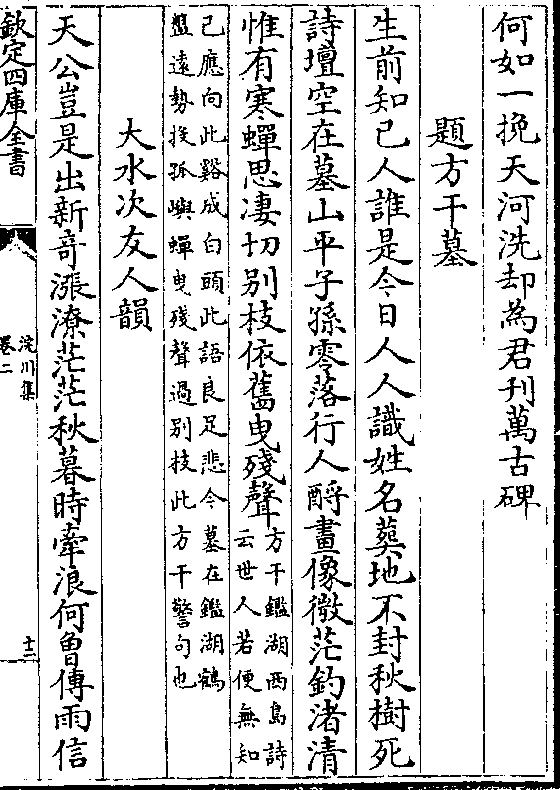 何如一挽天河洗却為君刊萬古碑
題方干墓
生前知己人誰是今日人人識姓名葬地不封秋樹死
詩壇空在墓山平子孫零落行人酹畫像微茫釣渚清
惟有寒蟬思凄切别枝依舊曳殘聲
方干鑑湖西島詩
云世人若便無知
己應向此谿成白頭此語良足悲今墓在鑑湖鶴
盤逺勢投孤嶼蟬曳殘聲過别枝此方干警句也
大水次友人韻
天公豈是出新竒漲潦茫茫秋暮時牽浪何曾傳雨信
欽定四庫全書
浣川集
卷二
十二